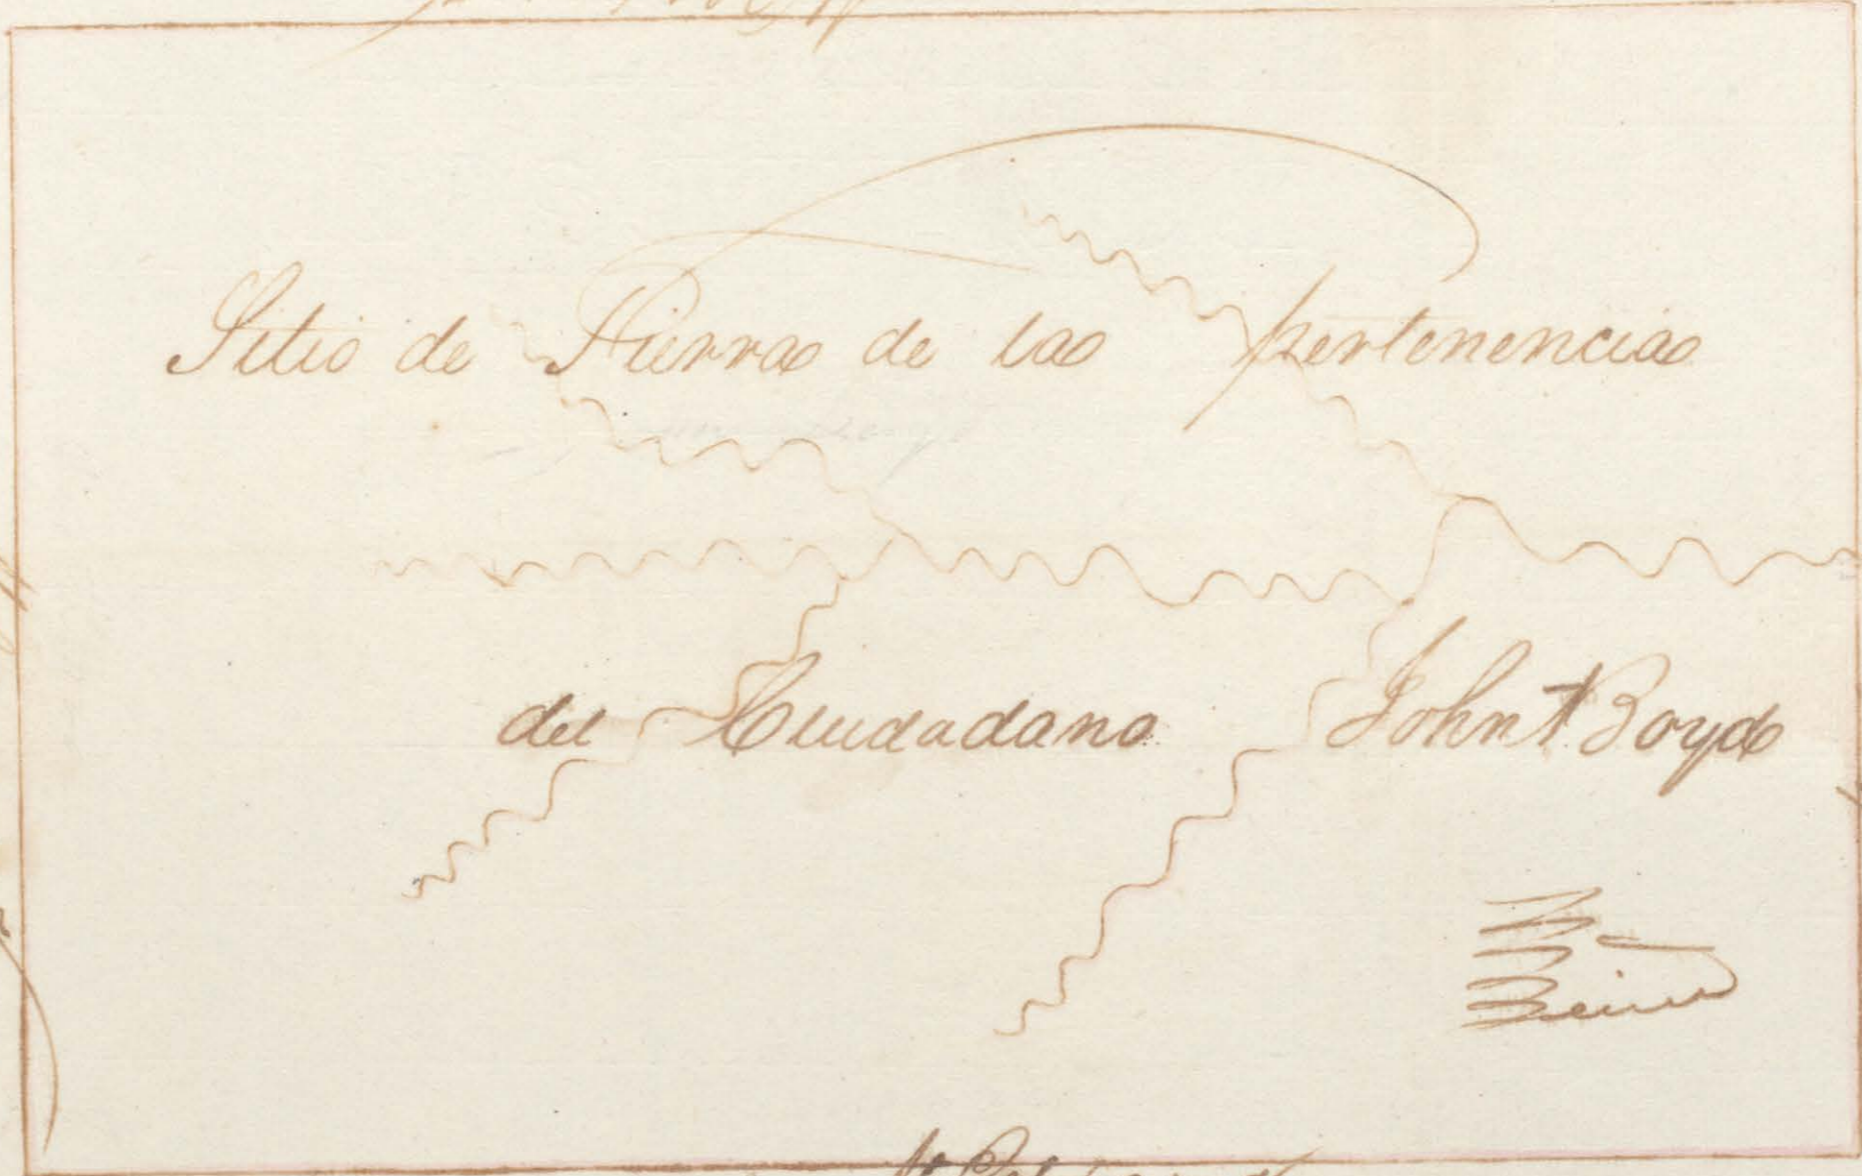 Sitio de Tierras de las pertenencias
del Ciudadano John t Boyd